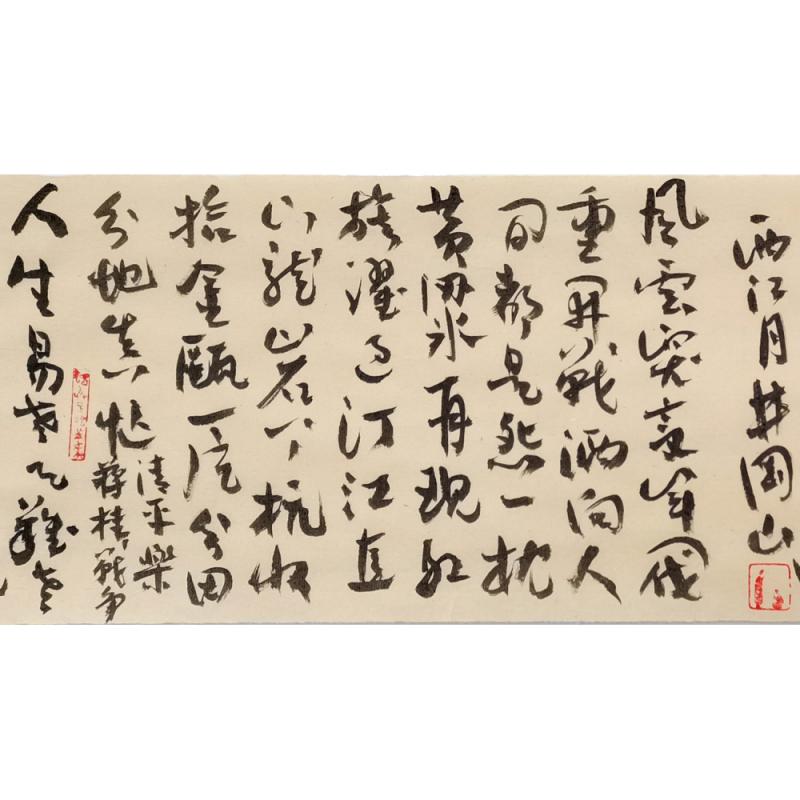 西江月井岡山
風雲突变軍閥
重開戰洒向人
間都是怨一枕
黄粱再現紅
旗躍過汀江直
下龍岩上杭收
拾金甌一片分田
分地真忙
清平樂
蔣桂戰争
人生易老天難老